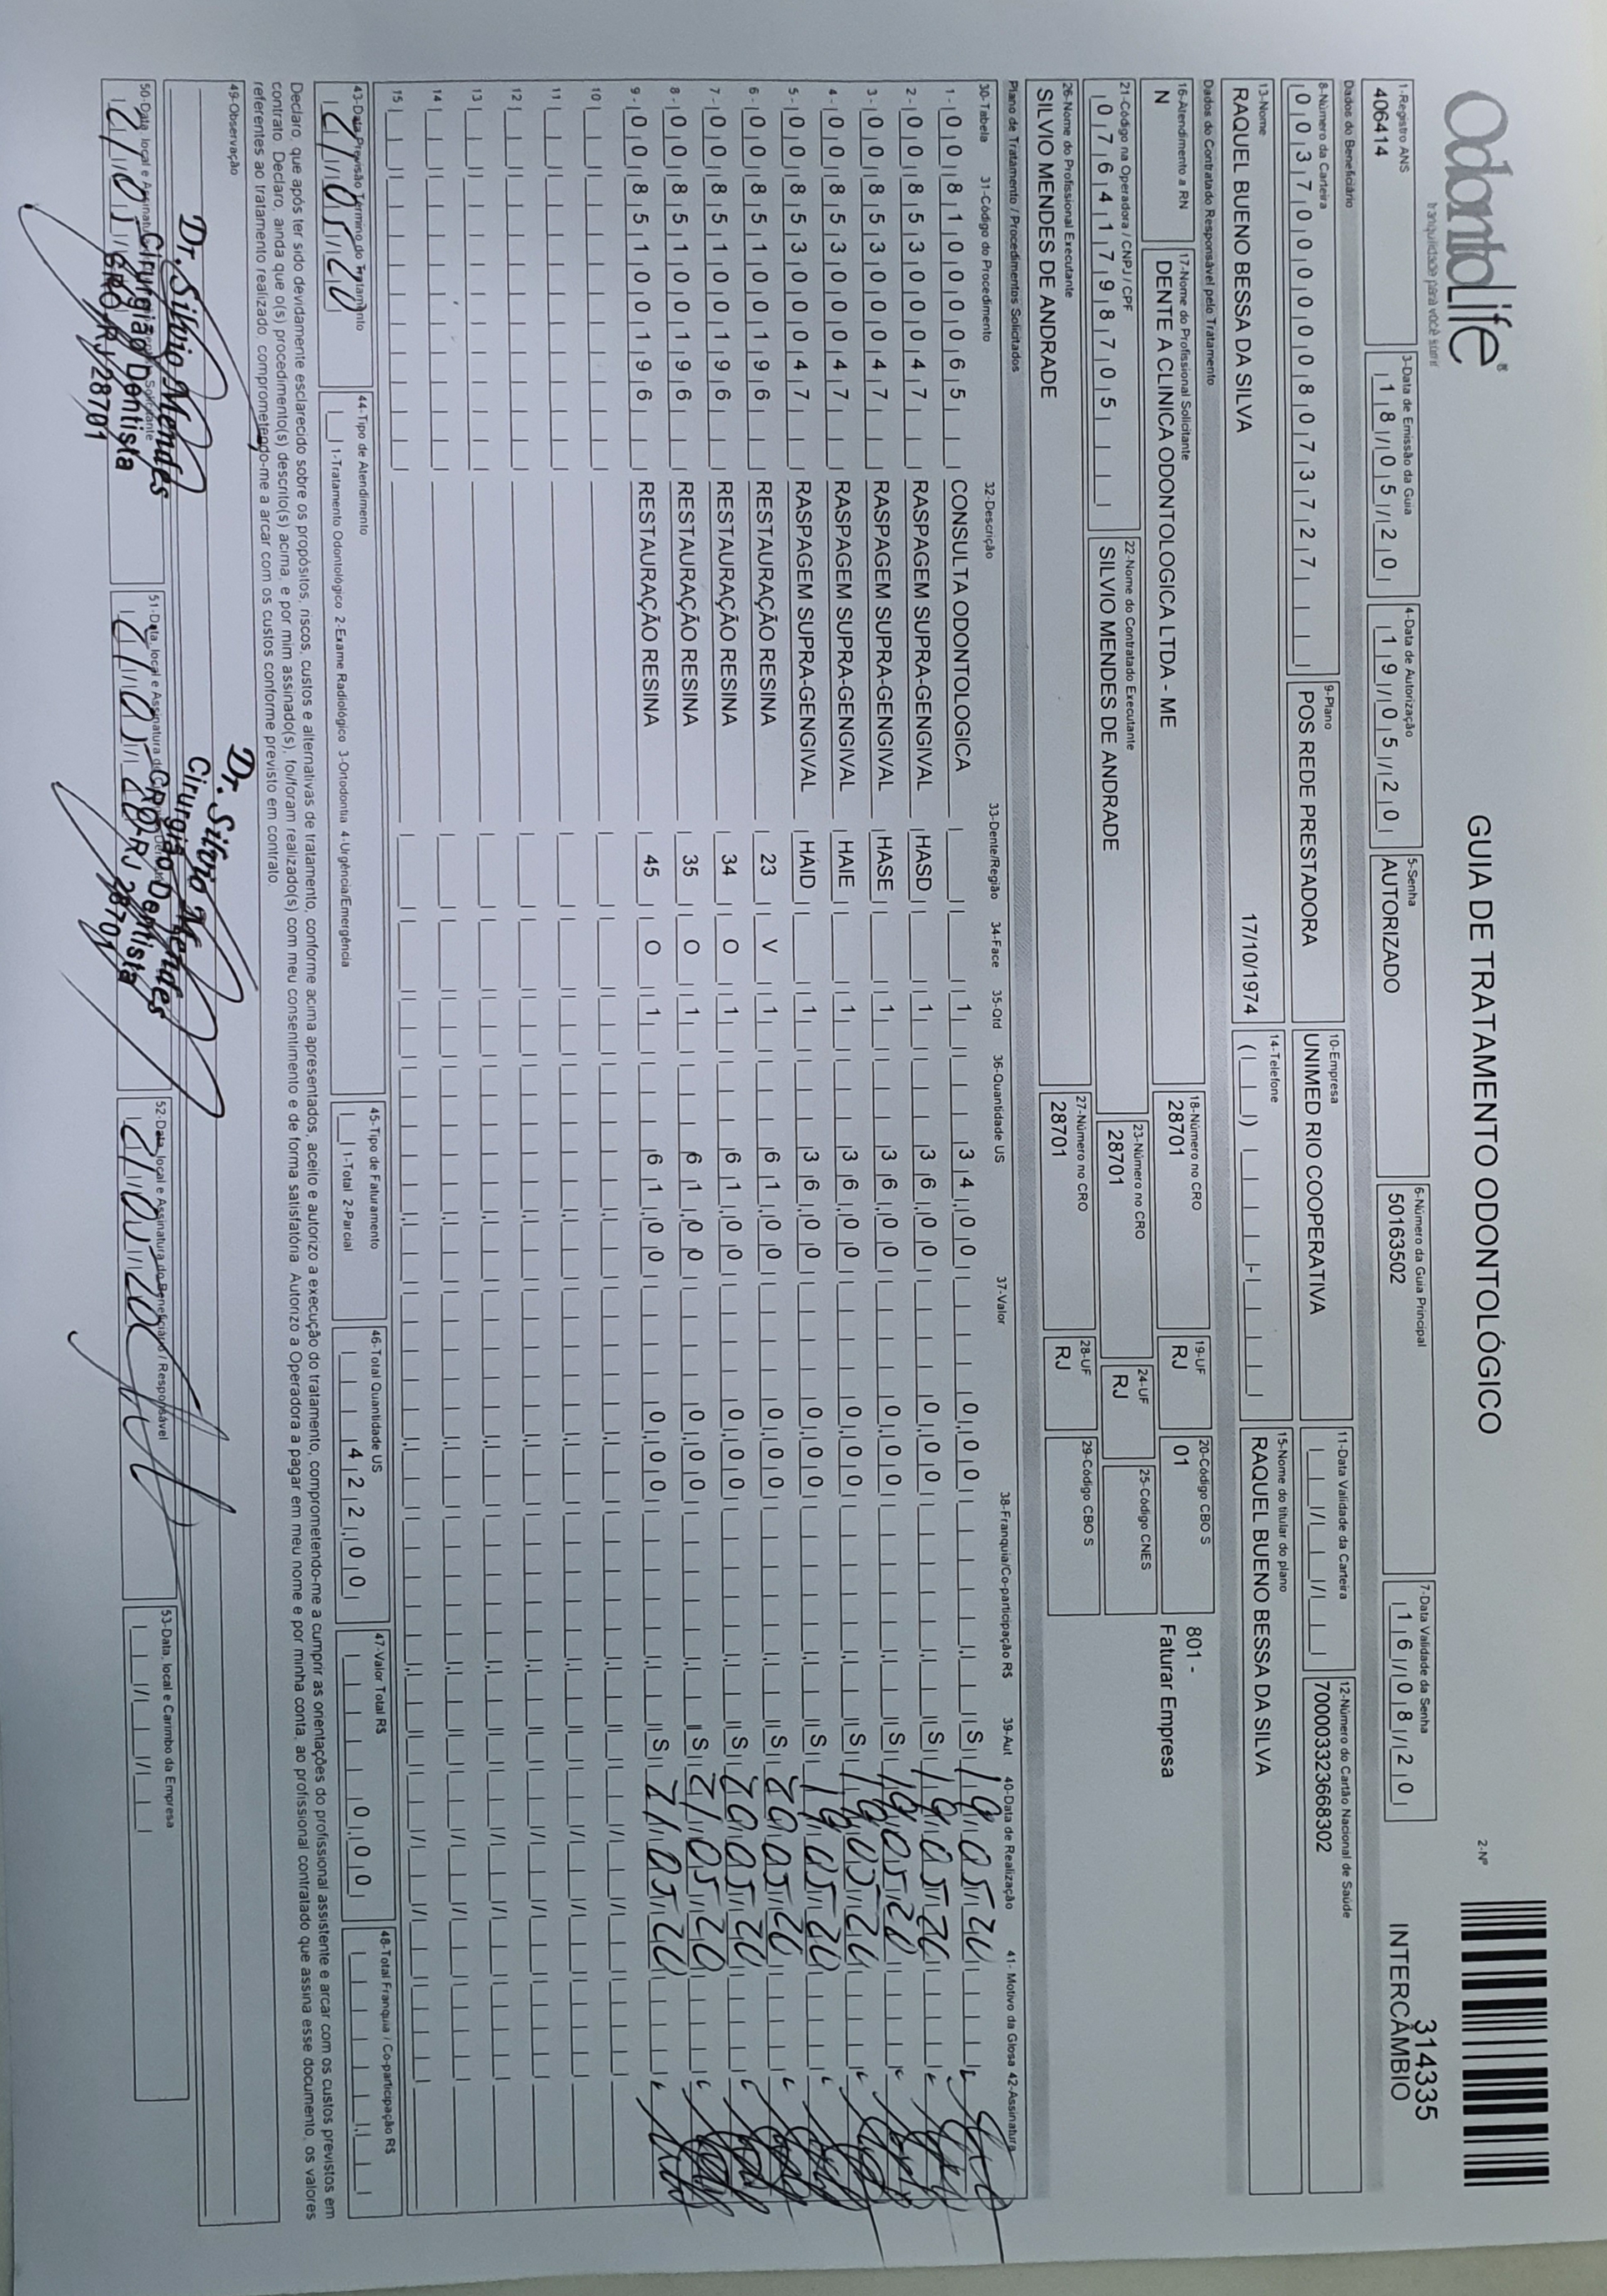 OdontoLife®
tranquilidade para você sorrir
GUIA DE TRATAMENTO ODONTOLÓGICO
2-Nº
314335
INTERCÂMBIO
1-Registro ANS
406414
3-Data de Emissão da Guia
18/05/20
4-Data de Autorização
19/05/20
5-Senha
AUTORIZADO
6-Número da Guia Principal
50163502
7-Data Validade da Senha
16/08/20
Dados do Beneficiário
8-Número da Carteira
00370000008073727
9-Plano
POS REDE PRESTADORA
10-Empresa
UNIMED RIO COOPERATIVA
11-Data Validade da Carteira
12-Número do Cartão Nacional de Saúde
700003323668302
13-Nome
RAQUEL BUENO BESSA DA SILVA 17/10/1974
14-Telefone
15-Nome do titular do plano
RAQUEL BUENO BESSA DA SILVA
Dados do Contratado Responsável pelo Tratamento
16-Atendimento a RN
N
17-Nome do Profissional Solicitante
DENTE A CLINICA ODONTOLOGICA LTDA - ME
18-Número no CRO
28701
19-UF
RJ
20-Código CBO S
01
801 -
Faturar Empresa
21-Código na Operadora / CNPJ / CPF
07641798705
22-Nome do Contratado Executante
SILVIO MENDES DE ANDRADE
23-Número no CRO
28701
24-UF
RJ
25-Código CNES
26-Nome do Profissional Executante
SILVIO MENDES DE ANDRADE
27-Número no CRO
28701
28-UF
RJ
29-Código CBO S
Plano de Tratamento / Procedimentos Solicitados
30-Tabela 31-Código do Procedimento 32-Descrição 33-Dente/Região 34-Face 35-Qtd 36-Quantidade US 37-Valor 38-Franquia/Co-participação R$ 39-Aut 40-Data de Realização 41- Motivo da Glosa 42-Assinatura
1- 00 81000065 CONSULTA ODONTOLOGICA 1 34,00 0,00 S 19/05/20
2- 00 85300047 RASPAGEM SUPRA-GENGIVAL HASD 1 36,00 0,00 S 19/05/20
3- 00 85300047 RASPAGEM SUPRA-GENGIVAL HASE 1 36,00 0,00 S 19/05/20
4- 00 85300047 RASPAGEM SUPRA-GENGIVAL HAIE 1 36,00 0,00 S 19/05/20
5- 00 85300047 RASPAGEM SUPRA-GENGIVAL HAID 1 36,00 0,00 S 19/05/20
6- 00 85100196 RESTAURAÇÃO RESINA 23 V 1 61,00 0,00 S 20/05/20
7- 00 85100196 RESTAURAÇÃO RESINA 34 O 1 61,00 0,00 S 20/05/20
8- 00 85100196 RESTAURAÇÃO RESINA 35 O 1 61,00 0,00 S 21/05/20
9- 00 85100196 RESTAURAÇÃO RESINA 45 O 1 61,00 0,00 S 21/05/20
10
11
12
13
14
15
43-Data Previsão Término do Tratamento
21/05/20
44-Tipo de Atendimento
1-Tratamento Odontológico 2-Exame Radiológico 3-Ortodontia 4-Urgência/Emergência
45-Tipo de Faturamento
1-Total 2-Parcial
46-Total Quantidade US
422,00
47-Valor Total R$
0,00
48-Total Franquia / Co-participação R$
Declaro, que após ter sido devidamente esclarecido sobre os propósitos, riscos, custos e alternativas de tratamento, conforme acima apresentados, aceito e autorizo a execução do tratamento, comprometendo-me a cumprir as orientações do profissional assistente e arcar com os custos previstos em
contrato. Declaro, ainda que o(s) procedimento(s) descrito(s) acima, e por mim assinado(s), foi/foram realizado(s) com meu consentimento e de forma satisfatória. Autorizo a Operadora a pagar em meu nome e por minha conta, ao profissional contratado que assina esse documento, os valores
referentes ao tratamento realizado, comprometendo-me a arcar com os custos conforme previsto em contrato.
49-Observação
Dr. Silvio Mendes
Cirurgião Dentista
CRO-RJ 28701
Dr. Silvio Mendes
Cirurgião Dentista
CRO-RJ 28701
50-Data, local e Assinatura do Cirurgião-Dentista Solicitante
21/05/20
51-Data, local e Assinatura do Cirurgião-Dentista
21/05/20
52-Data, local e Assinatura do Beneficiário / Responsável
21/05/20
53-Data, local e Carimbo da Empresa